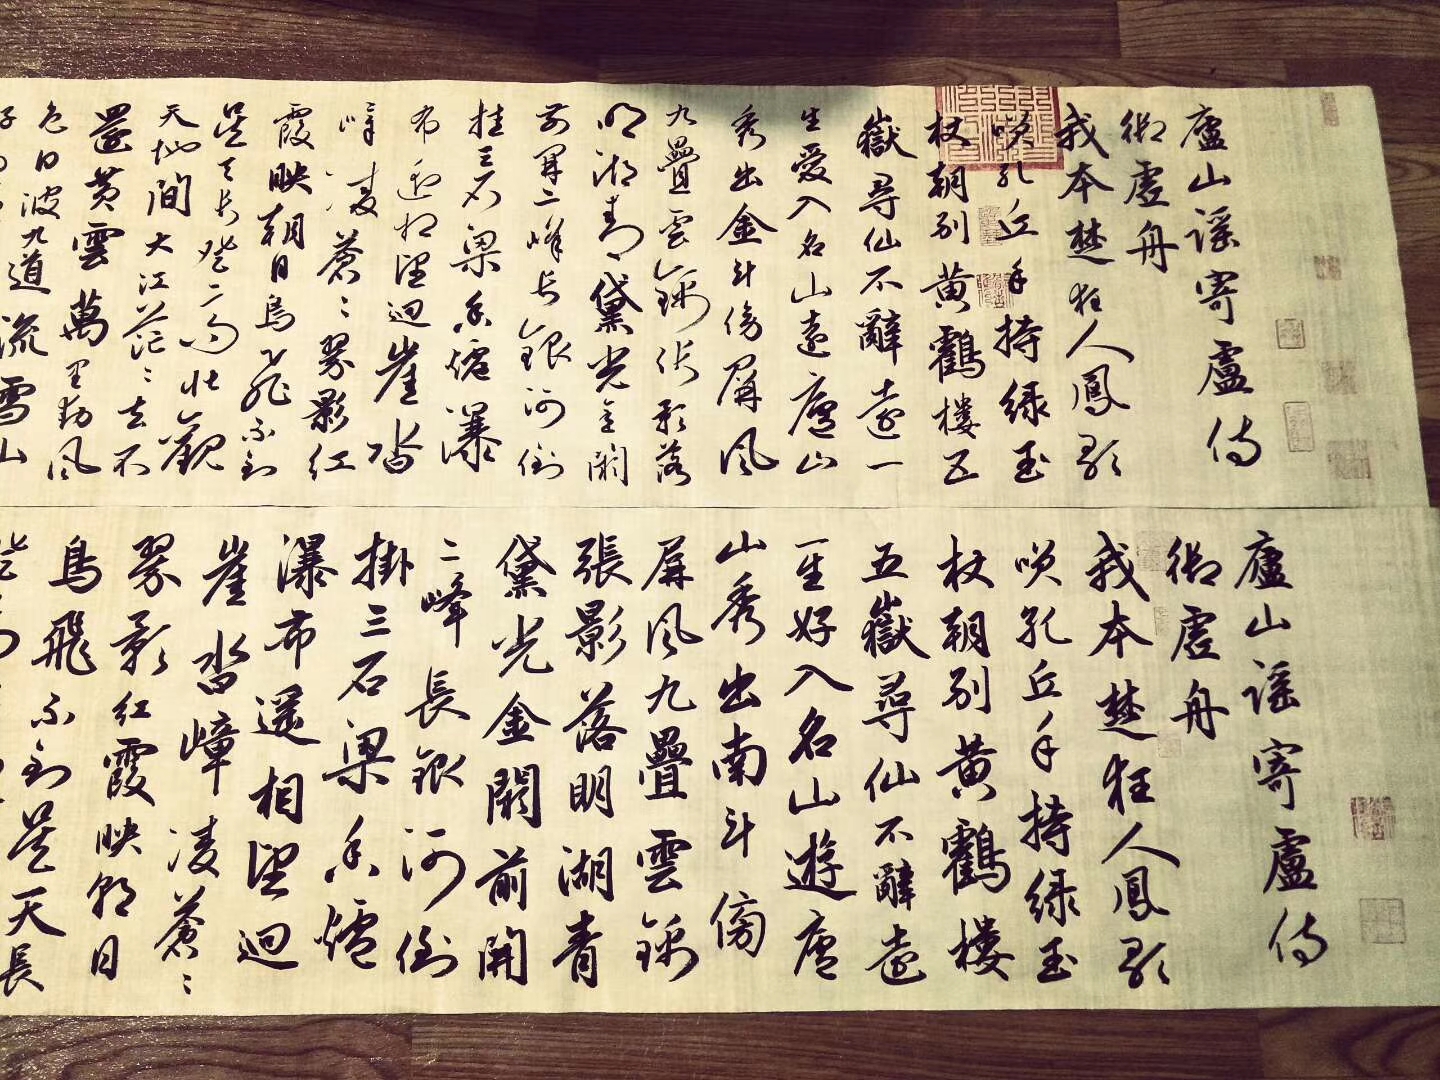 廬山谣寄盧侍
御虚舟
我本楚狂人鳳歌
笑孔丘手持绿玉
杖朝别黄鶴楼五
嶽尋仙不辭遠一
生愛入名山遊廬山
秀出金斗傍屏風
九疊雲錦張影落
明湖青黛光金闕
前開二峰长银河倒
挂三石梁香爐瀑
布遥相望迴崖沓
嶂凌蒼々翠影红
霞映朝日鳥飛不到
吴天长登高壮觀
天地間大江茫々去不
還黄雲萬里動風
色白波九道流雪山
廬山谣寄盧侍
御虚舟
我本楚狂人鳳歌
笑孔丘手持绿玉
杖朝别黄鶴楼
五嶽尋仙不辭遠
一生好入名山遊廬
山秀出南斗傍
屏風九疊雲錦
張影落明湖青
黛光金闕前開
二峰長銀河倒
掛三石梁香爐
瀑布遥相望迴
崖沓嶂凌蒼々
翠影红霞映朝日
鳥飛不到吴天長